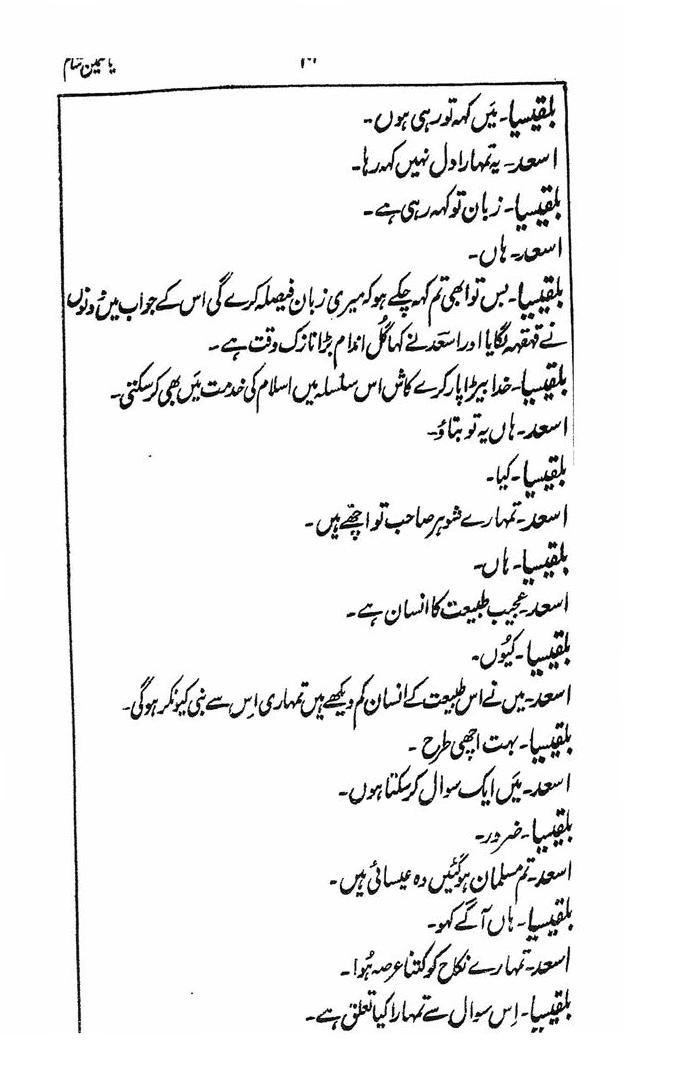 یاسمین شام
بلقیسیا۔ میَں کہہ تو رہی ہوں۔
اسعد۔ یہ تمہارا دل نہیں کہہ رہا۔
بلقیسیا۔ زبان تو کہہ رہی ہے۔
اسعد۔ ہاں۔
بلقیسیا۔ بس تو ابھی تم کہہ چکے ہو کہ میری زبان فیصلہ کرے گی اس کے جواب میں دونوں
نے قہقہہ لگایا اور اسعد نے کہا گل اندام بڑا نازک وقت ہے۔
بلقیسیا۔ خدا بیڑا پار کرے کاش اس سلسلہ میں اسلام کی خدمت میَں بھی کر سکتی۔
اسعد۔ ہاں یہ تو بتاؤ۔
بلقیسیا۔ کیا۔
اسعد۔ تمہارے شوہر صاحب تو اچھّے ہیں۔
بلقیسیا۔ ہاں۔
اسعد۔ عجیب طبیعت کا انسان ہے۔
بلقیسیا۔ کیُوں۔
اسعد۔ میں نے اس طبیعت کے انسان کم دیکھے ہیں تمہاری اِس سے نبی کیونکر ہوگی۔
بلقیسیا۔ بہت اچھی طرح۔
اسعد۔ میَں ایک سوال کر سکتا ہوں۔
بلقیسیا۔ ضرور۔
اسعد۔ تم مسلمان ہو گئیں وہ عیسائی ہیں۔
بلقیسیا۔ ہاں آگے کہو۔
اسعد۔ تمہارے نکاح کو کتنا عرصہ ہُوا۔
بلقیسیا۔ اِس سوال سے تمہارا کیا تعلق ہے۔